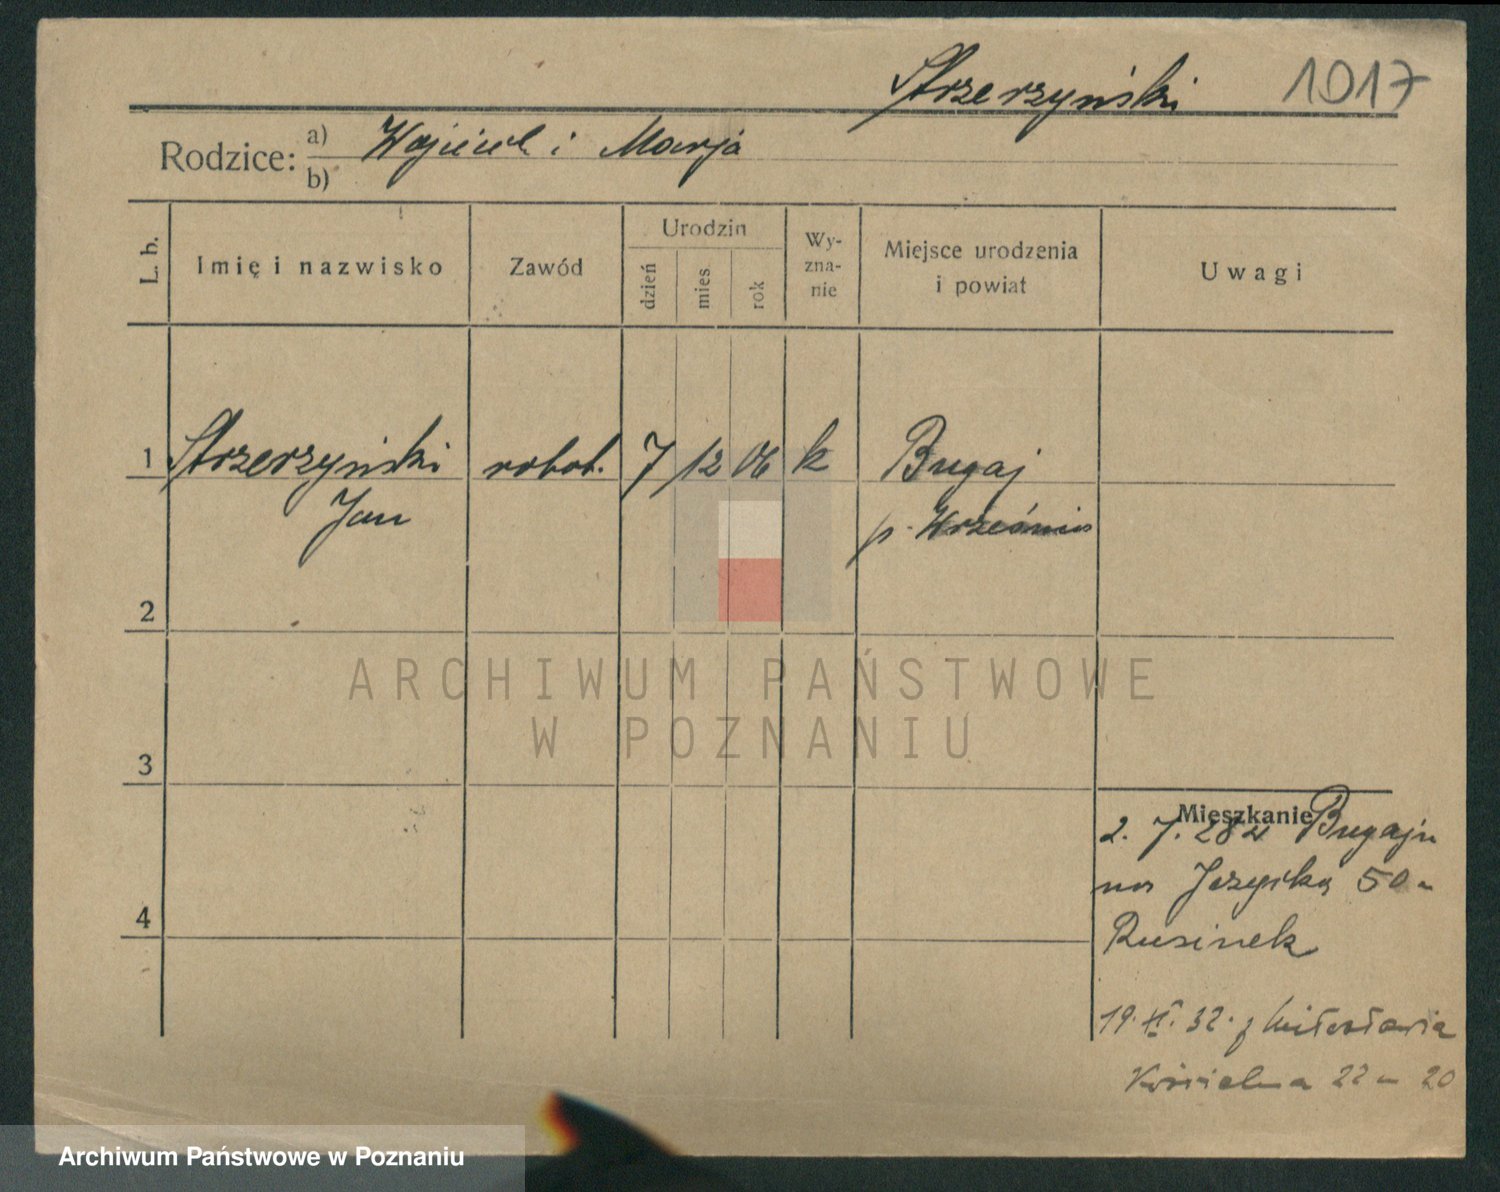 Strzerzyński 1017
Rodzice: a) Wojciech i Marja
b)
L. b. Imię i nazwisko Zawód Urodzin dzień mies rok Wy-zna-nie Miejsce urodzenia i powiat Uwagi
1 Strzerzyński robot. 7 12 06 k Bugaj
Jan p. Września
2
ARCHIWUM PAŃSTWOWE
W POZNANIU
3
Mieszkanie
2. 7. 28 z Bugaju
na 50
Rusinek
4
19. II. 32. z Miłosławia
Kościelna 22 20
Archiwum Państwowe w Poznaniu